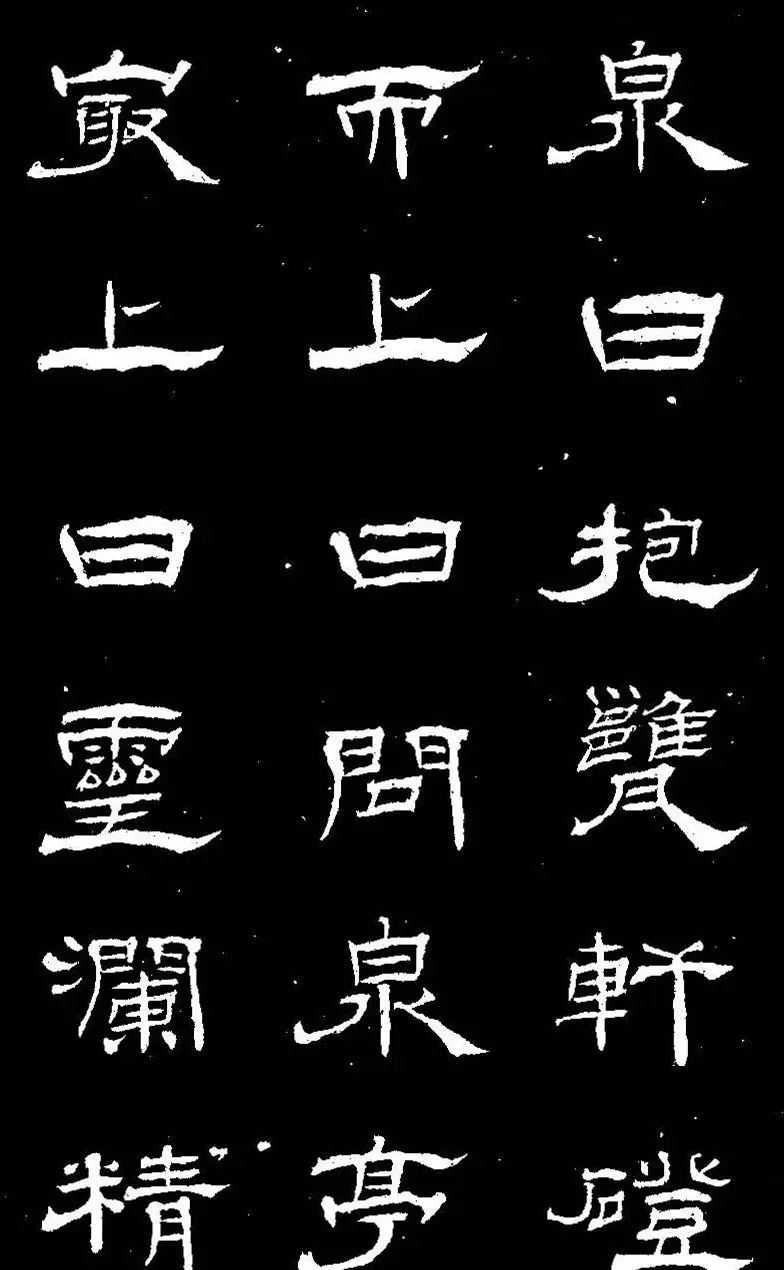 泉曰抱甕軒磴
而上曰問泉亭
最上曰靈瀾精